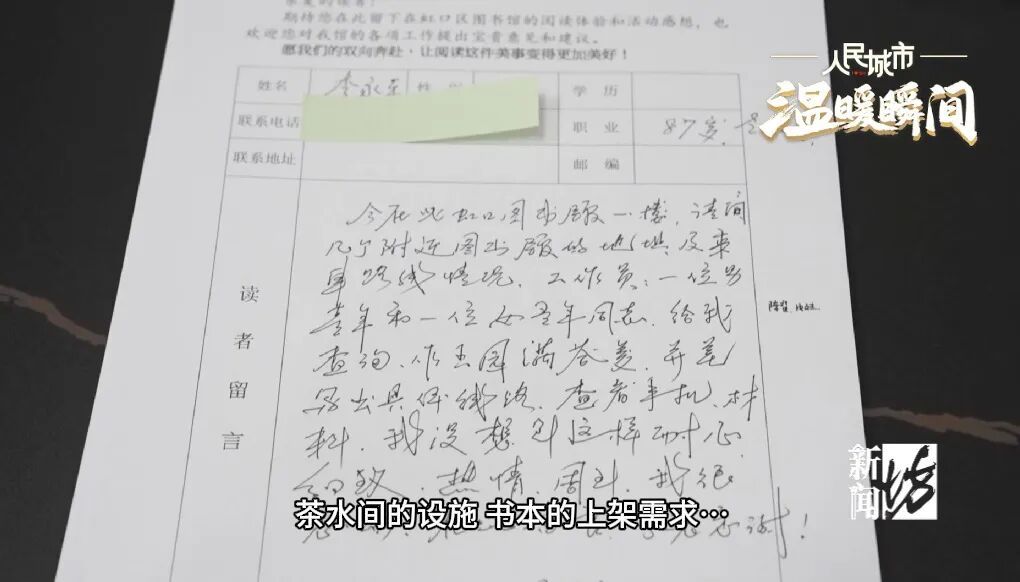 亲爱的读者！
期待您在此留下在虹口区图书馆的阅读体验和活动感想，也
欢迎您对我馆的各项工作提出宝贵意见和建议。
愿我们的双向奔赴，让阅读这件美事变得更加美好！
人民城市
温暖瞬间
姓名 李永 性 学历
联系电话 职业 87岁
联系地址 邮编
读者留言
今在此虹口图书馆一楼，请问
几个附近图书馆的地址及乘
车路线情况，工作员：一位男
青年和一位女青年同志，给我
查询，作出圆满答美，并且
写出具体线路，查看手机、材
料，我没想到这样耐心
细致、热情、周到，我很
谢！
新闻坊
茶水间的设施 书本的上架需求…